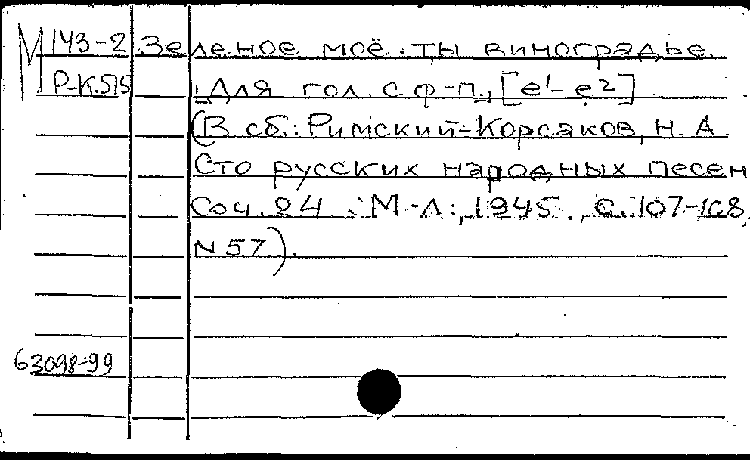 М 143-2 Зеленое моё ты виноградье.
Р-К.515 Для гол. с ф-п., [e¹-e²]
(В сб.: Римский-Корсаков, Н. А
Сто русских народных песен
Соч. 24. М.-Л., 1945., с. 107-108,
N 57).
63098-99